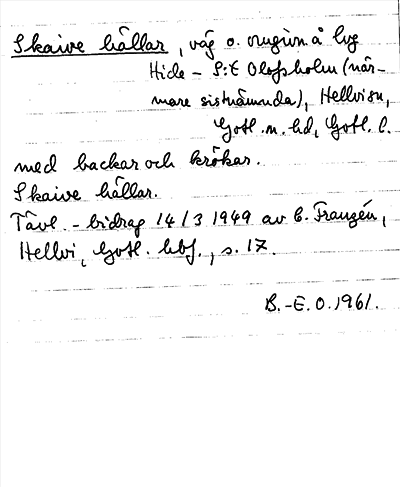 Skaive hällar, väg o. omgivn. å lvg
Hide – S:t Olofsholm (när-
mare sistnämnda), Hellvi sn,
Gotl. n. hd, Gotl. l.
med backar och krökar.
Skaive hällar.
Tävl. – bidrag 14/3 1949 av C. Franzén,
Hellvi, Gotl. hbf., s. 17.
B.-E. O. 1961.